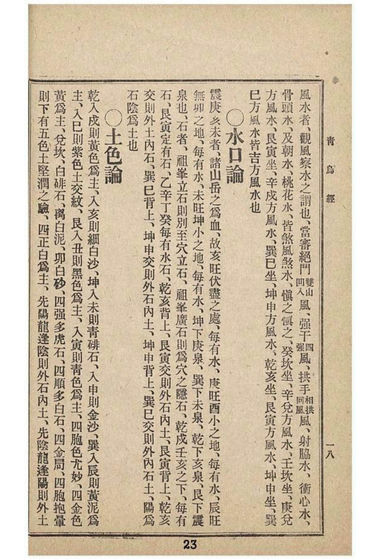 風水者、觀風察水之謂也、當審絕門雙山凹入風、强干四强風、拱手相拱回風風、射脇水、衝心水、
骨頭水、及朝水、桃花水、皆煞風煞水、愼之愼之、癸坎坐、辛兌方風水、壬坎坐、庚兌
方風水、艮寅坐、辛戌方風水、巽巳坐、坤申方風水、乾亥坐、艮寅方風水、坤申坐、巽
巳方風水皆吉方風水也
〇水口論
震庚亥未者、諸山岳之爲血、故亥旺伏盡之處、每有水、庚旺酉小之地、每有水、辰旺
無卯之地、每有水、未旺坤小之地、每有水、坤下庚泉、巽下未泉、乾下亥泉、艮下震
泉也、石者、祖峯立石則別至穴立石、祖峯廣石則爲穴之隱石、乾戌壬亥之下、每有
石、艮寅定有石、乙辛丁癸每有水石、乾亥背上、艮寅交則外石內土、艮寅背上、乾亥
交則外土內石、巽巳背上、坤申交則外石內土、坤申背上、巽巳交則外石內土、陽爲
石陰爲土也
〇土色論
乾入戌則黃色爲主、入亥則細白沙、坤入未則靑磚石、入申則金沙、巽入辰則黃泥爲
主、入巳則紫色土交紋、艮入丑則黑色爲主、入寅則靑色爲主、四胞色尤妙、四金色
黃爲主、兌坎、白磚石、离白泥、卯白砂、四强多虎石、四順多白石、四金局、四胞抱暈
則下有五色土堅潤之驗、四正白爲主、先陽龍逢陰則外石內土、先陰龍逢陽則外土
靑烏經
一八
23